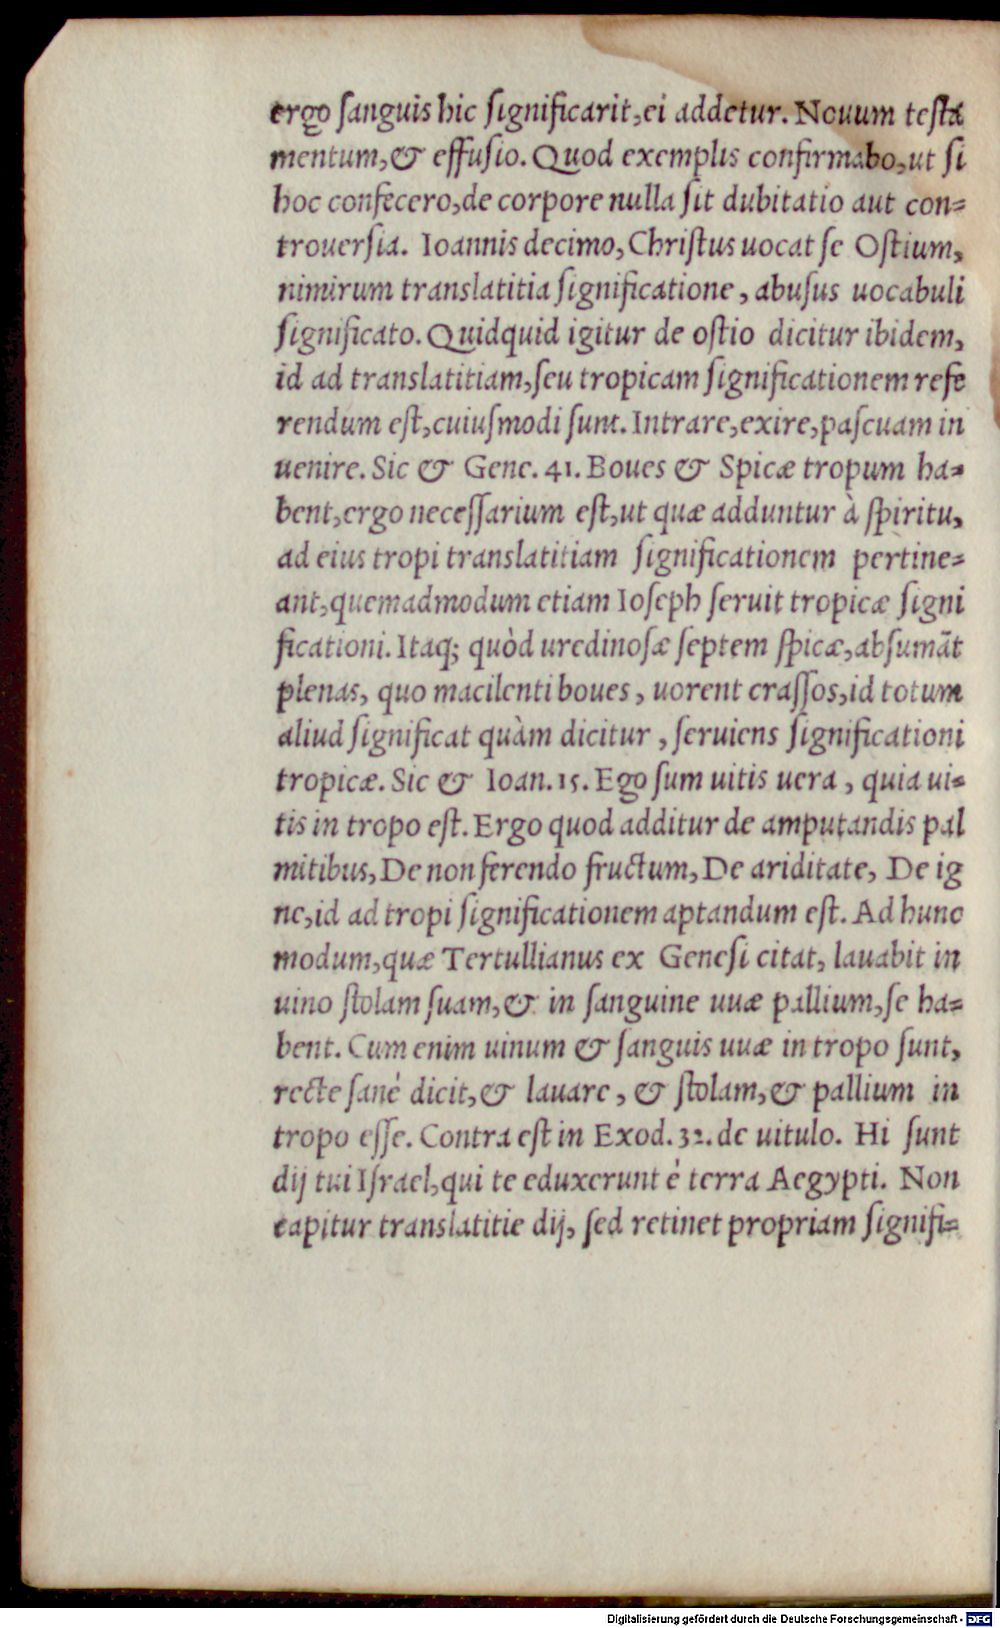 ergo ſanguis hic ſignificarit, ei addetur. Nouum teſta
mentum, & effuſio. Quod exemplis confirmabo, ut ſi
hoc confecero, de corpore nulla ſit dubitatio aut con=
trouerſia. Ioannis decimo, Chriſtus uocat ſe Oſtium,
nimirum translatitia ſignificatione, abuſus uocabuli
ſignificato. Quidquid igitur de oſtio dicitur ibidem,
id ad translatitiam, ſeu tropicam ſignificationem refe
rendum eſt, cuiuſmodi ſunt. Intrare, exire, paſcuam in
uenire. Sic & Gene. 41. Boues & Spicæ tropum ha=
bent, ergo neceſſarium eſt, ut quæ adduntur à ſpiritu,
ad eius tropi translatitiam ſignificationem pertine=
ant, quemadmodum etiam Ioſeph ſeruit tropicæ ſigni
ficationi. Itaq; quòd uredinoſæ ſeptem ſpicæ, abſumãt
plenas, quo macilenti boues, uorent craſſos, id totum
aliud ſignificat quàm dicitur, ſeruiens ſignificationi
tropicæ. Sic & Ioan. 15. Ego ſum uitis uera, quia ui=
tis in tropo eſt. Ergo quod additur de amputandis pal
mitibus, De non ferendo fructum, De ariditate, De ig
ne, id ad tropi ſignificationem aptandum eſt. Ad hunc
modum, quæ Tertullianus ex Geneſi citat, lauabit in
uino ſtolam ſuam, & in ſanguine uuæ pallium, ſe ha=
bent. Cum enim uinum & ſanguis uuæ in tropo ſunt,
recte ſanè dicit, & lauare, & ſtolam, & pallium in
tropo eſſe. Contra eſt in Exod. 32. de uitulo. Hi ſunt
dij tui Iſrael, qui te eduxerunt è terra Aegypti. Non
capitur translatitie dij, ſed retinet propriam ſignifi=
Digitalisierung gefördert durch die Deutsche Forschungsgemeinschaft - DFG